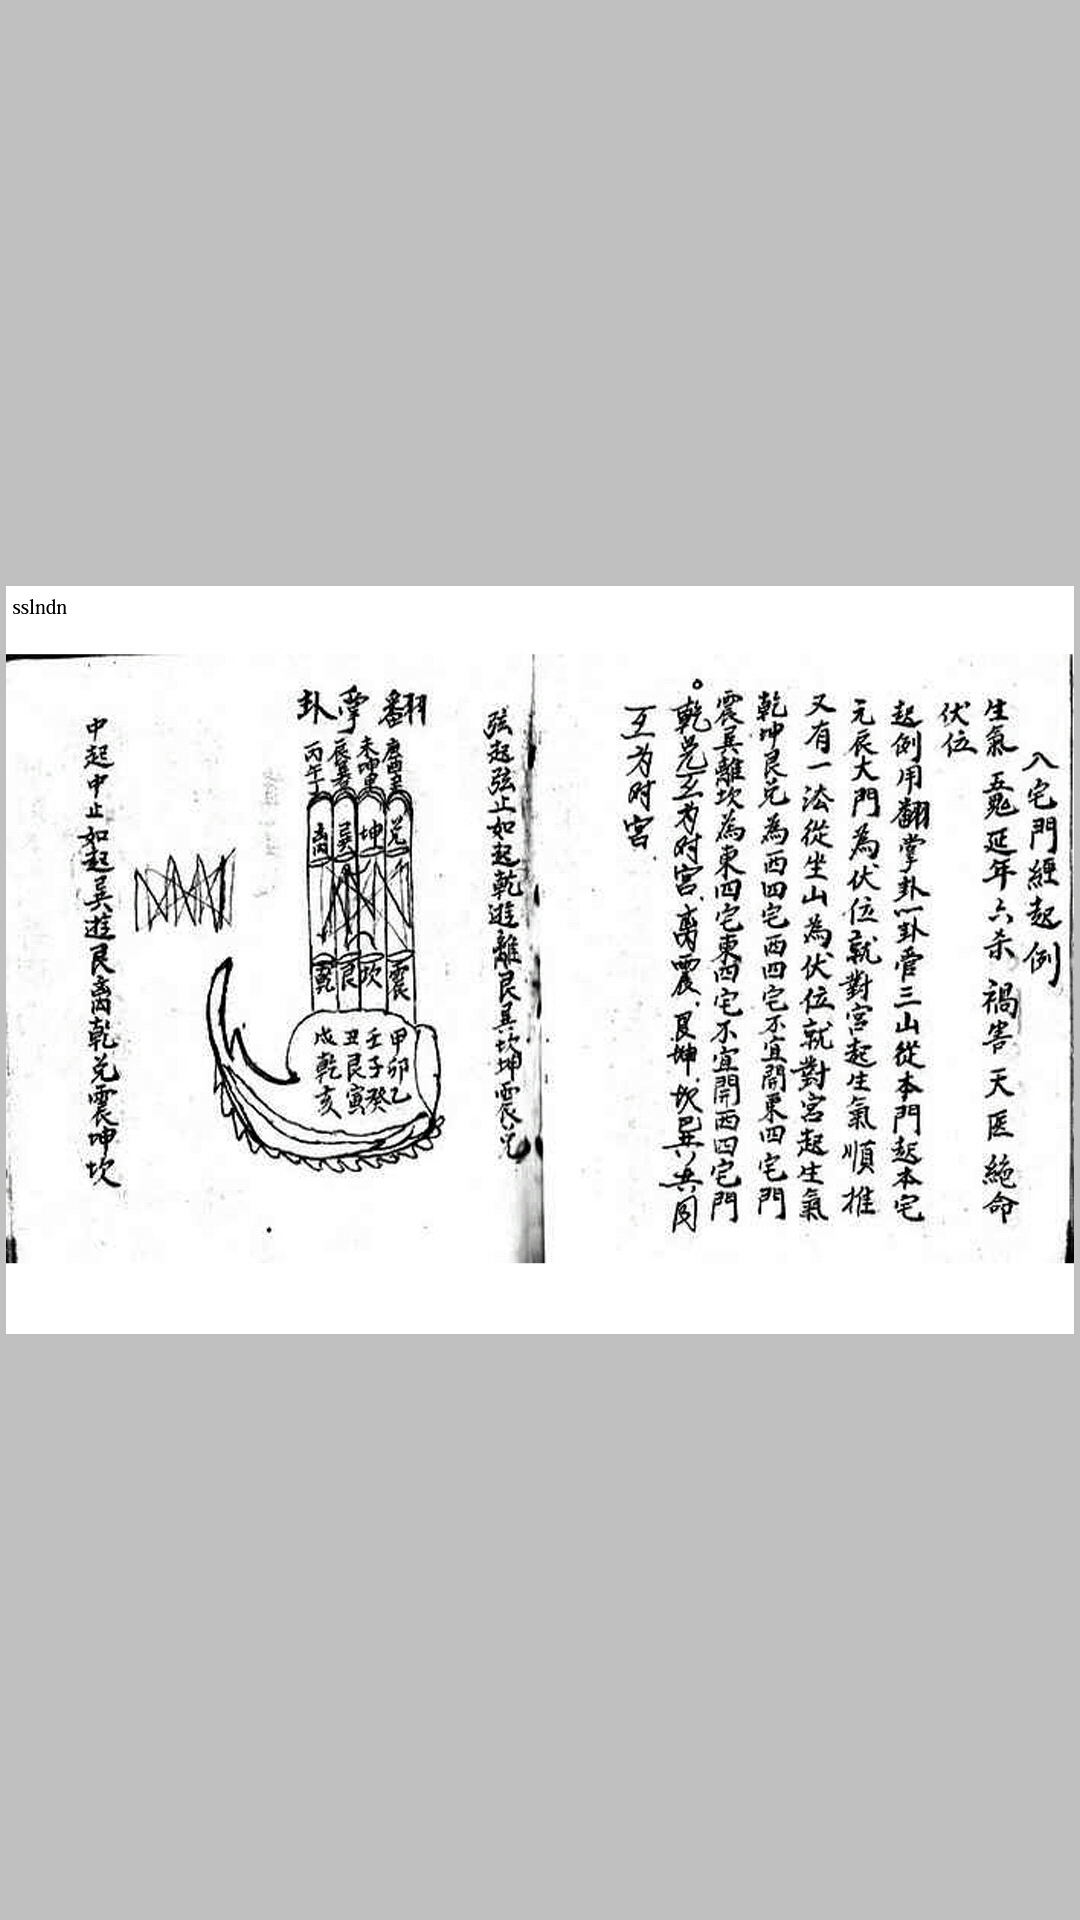 sslndn
入宅門經起例
生氣 五鬼 延年 六杀 禍害 天医 絶命
伏位
起例用翻掌卦一卦管三山從本門起本宅
元辰大門為伏位就對宮起生氣順推
又有一法從坐山為伏位就對宮起生氣
乾坤艮兌為西四宅西四宅不宜開東四宅門
震巽離坎為東四宅東四宅不宜開西四宅門
乾兌互为时宮离震艮坤坎巽共同
互为时宮
弦起弦止如起乾逰離艮巽坎坤震兌
翻掌卦
庚酉辛
未坤申
辰巽
丙午丁
兌
坤
巽
离
震
坎
艮
乾
甲卯乙
壬子癸
丑艮寅
戌乾亥
中起中止如起巽逰艮离乾兌震坤坎